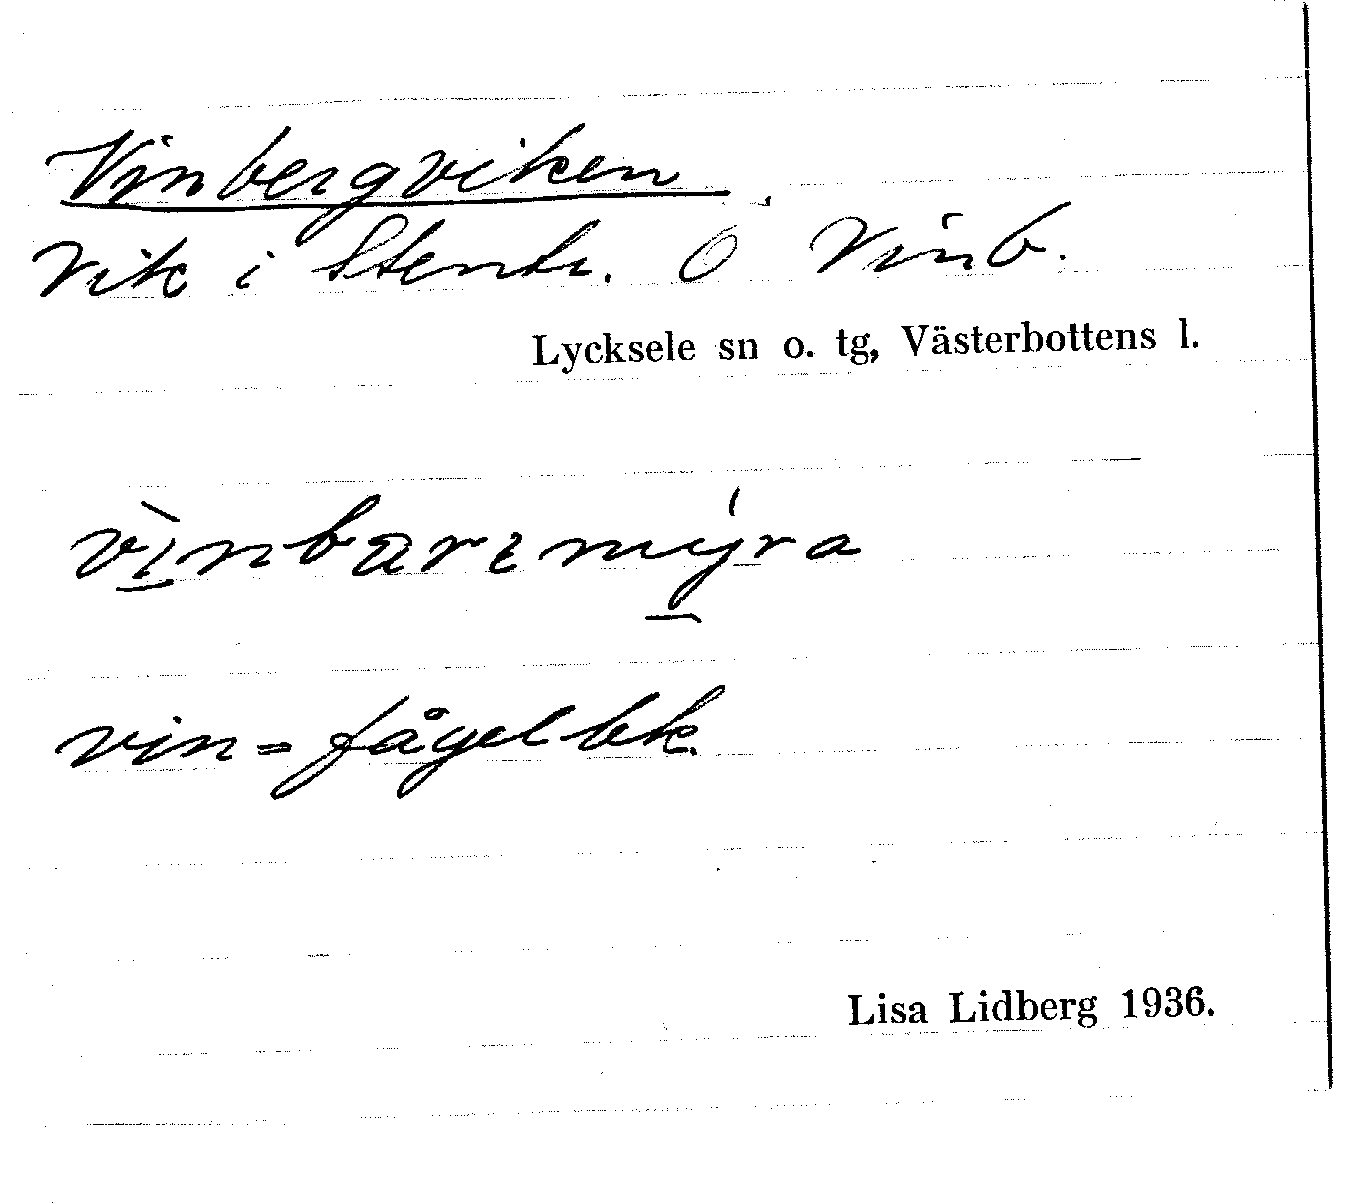 Vinbergviken
Vik i Stentr. O Vinb.
Lycksele sn o. tg, Västerbottens l.
vìnbarɩmýra
vin = fågelbk.
Lisa Lidberg 1936.